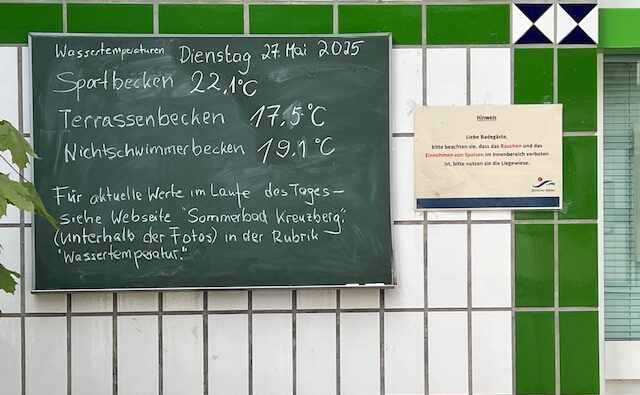 Wassertemperaturen Dienstag 27. Mai 2025
Sportbecken 22,1°C
Terrassenbecken 17,5°C
Nichtschwimmerbecken 19,1°C
Für aktuelle Werte im Laufe des Tages –
siehe Webseite "Sommerbad Kreuzberg".
(unterhalb der Fotos) in der Rubrik
"Wassertemperatur."
Hinweis
Liebe Badegäste,
bitte beachten sie, dass das Rauchen und das
Einnehmen von Speisen im Innenbereich verboten
ist, bitte nutzen sie die Liegewiese.
Berliner Bäder